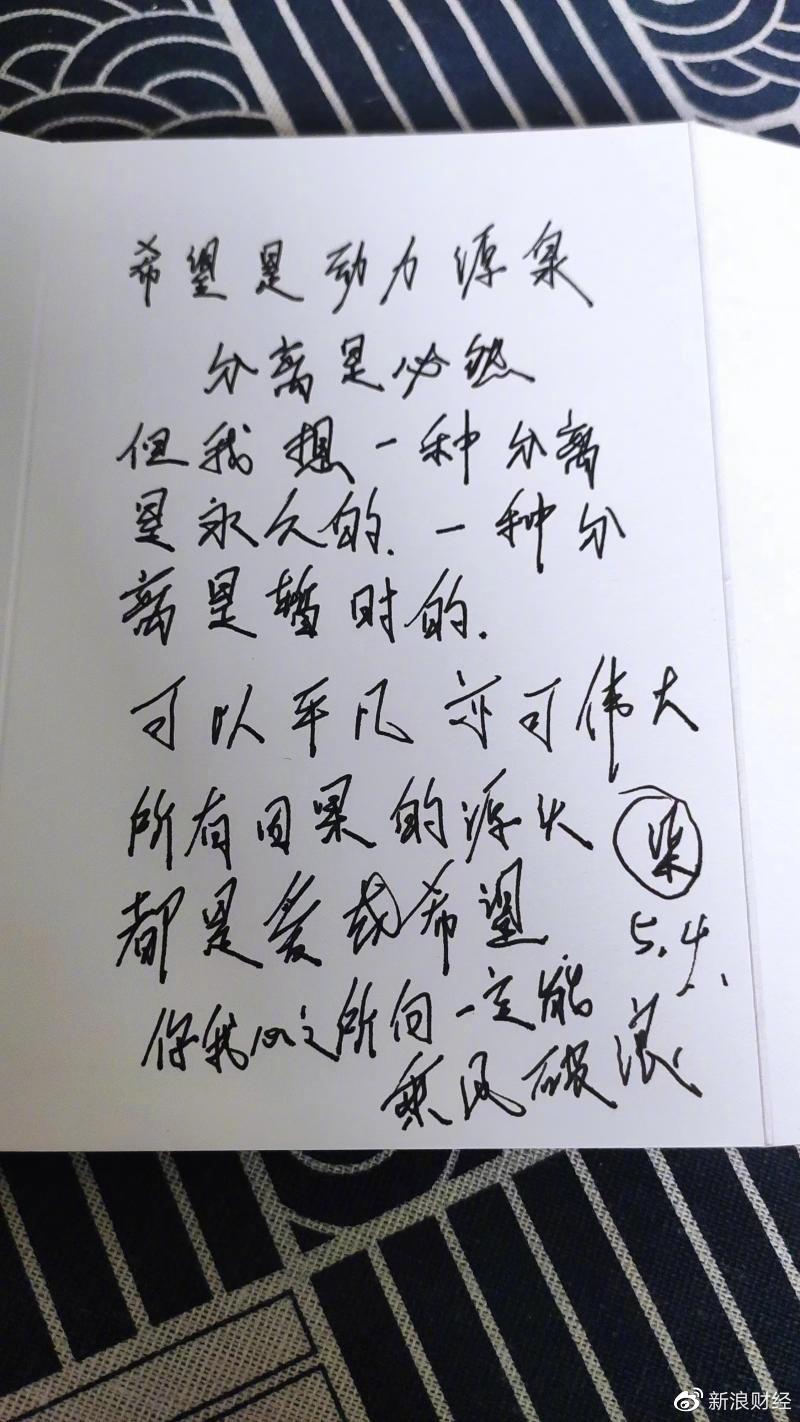 希望是动力源泉
分离是必然
但我想一种分离
是永久的.一种分
离是暂时的.
可以平凡 亦可伟大
所有因果的源头
都是爱或希望
你我心之所向一定能
乘风破浪
梁
5.4.
新浪财经